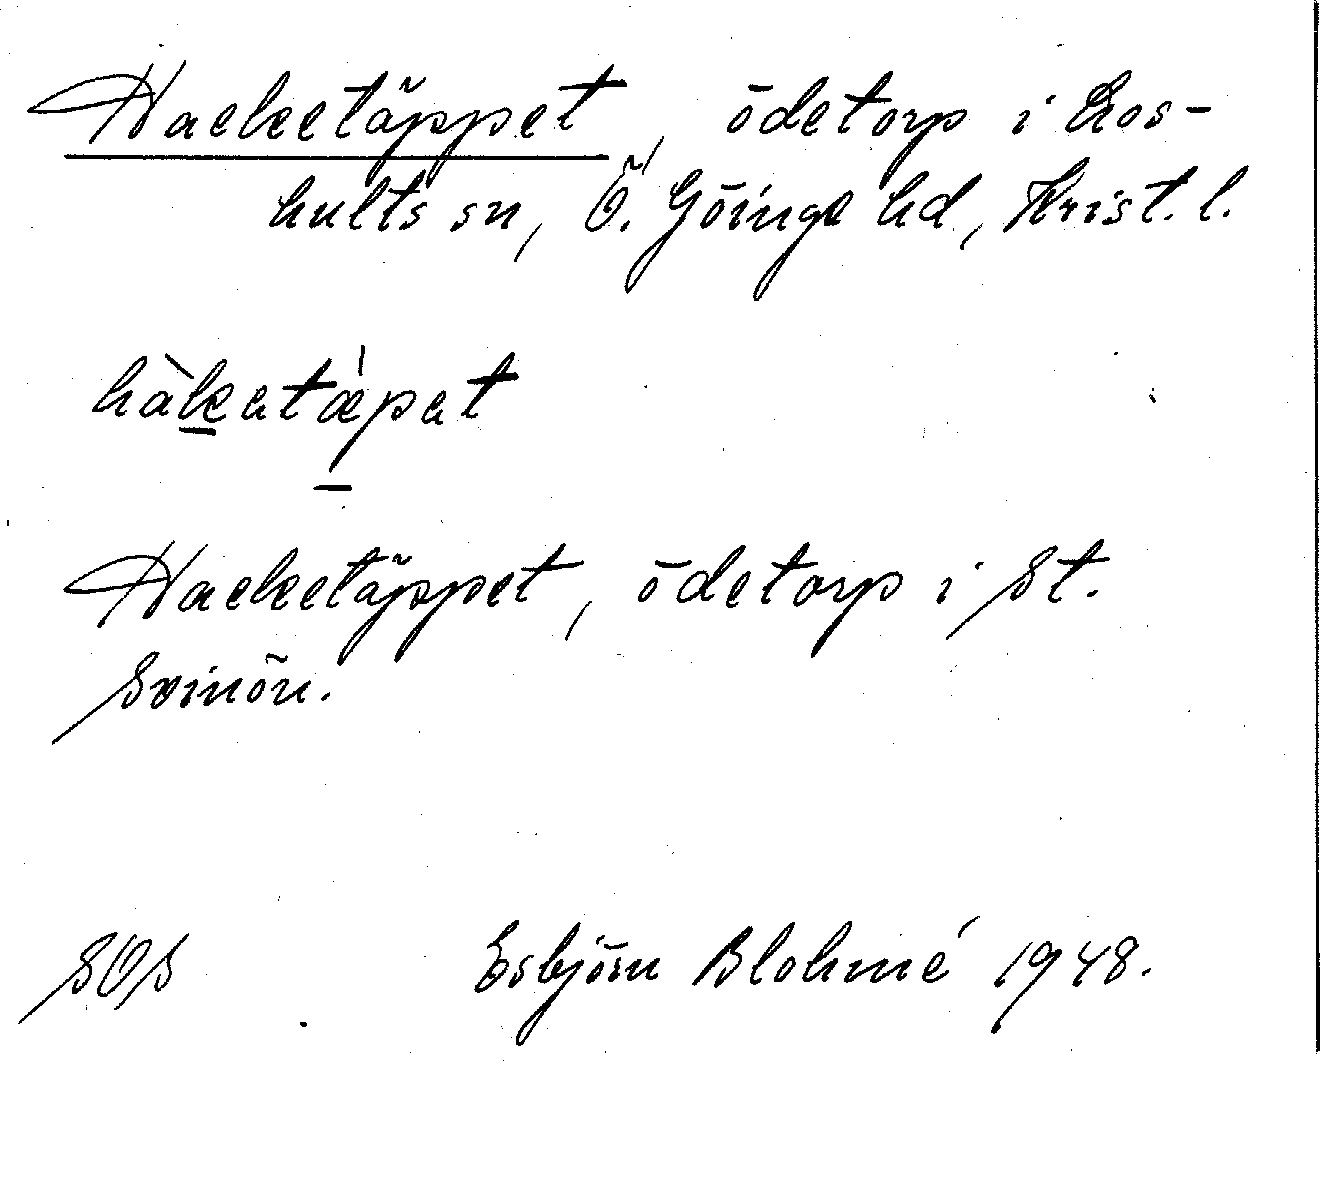 Hacketäppet, ödetorp i Los-
hults sn, Ö. Göinge hd, Krist. l.
hàkatǽpat
Hacketäppet, ödetorp i St.
Svinön.
SOS Esbjörn Blohmé 1948.